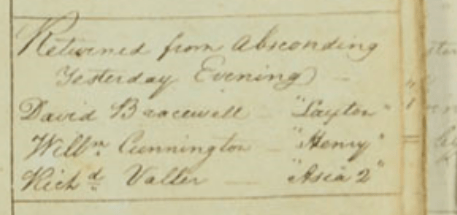 Returned from Absconding
Yesterday Evening
David Bracewell — "Layton"
Willm Cunnington — "Henry"
Richd Valler — "Asia 2"